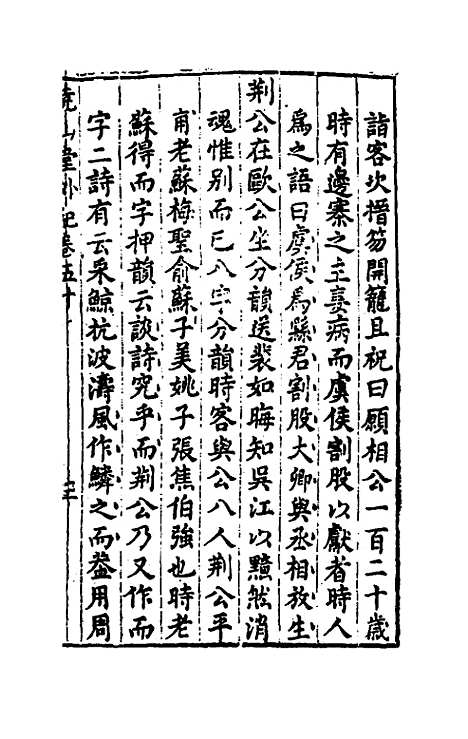 詣客次搢笏開籠且祝曰願相公一百二十歲
時有邊寨之主妻病而虞侯割股以獻者時人
爲之語曰虞侯爲縣君割股大卿與丞相放生
荆公在歐公坐分韻送裴如晦知吳江以黯然消
魂惟别而已八字分韻時客與公八人荆公平
甫老蘇梅聖俞蘇子美姚子張焦伯強也時老
蘇得而字押韻云談詩究乎而荆公乃又作而
字二詩有云采鯨抗波濤風作鱗之而葢用周
堯山堂外紀卷五十